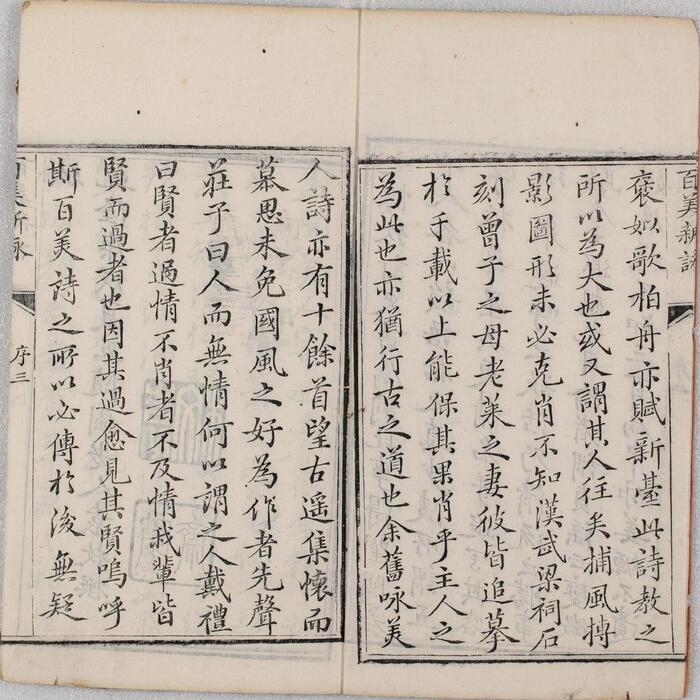 百美新詠
褒姒歌柏舟亦賦新臺此詩教之
所以為大也或又謂其人往矣捕風摶
影圖形未必克肖不知漢武梁祠石
刻曾子之母老萊之妻彼皆追摹
於千載以上能保其果肖乎主人之
為此也亦猶行古之道也余舊咏美
人詩亦有十餘首望古遥集懷而
慕思未免國風之好為作者先聲
莊子曰人而無情何以謂之人戴禮
曰賢者過情不肖者不及情我輩皆
賢而過者也因其過愈見其賢嗚呼
斯百美詩之所以必傳於後無疑
百美新詠
序三